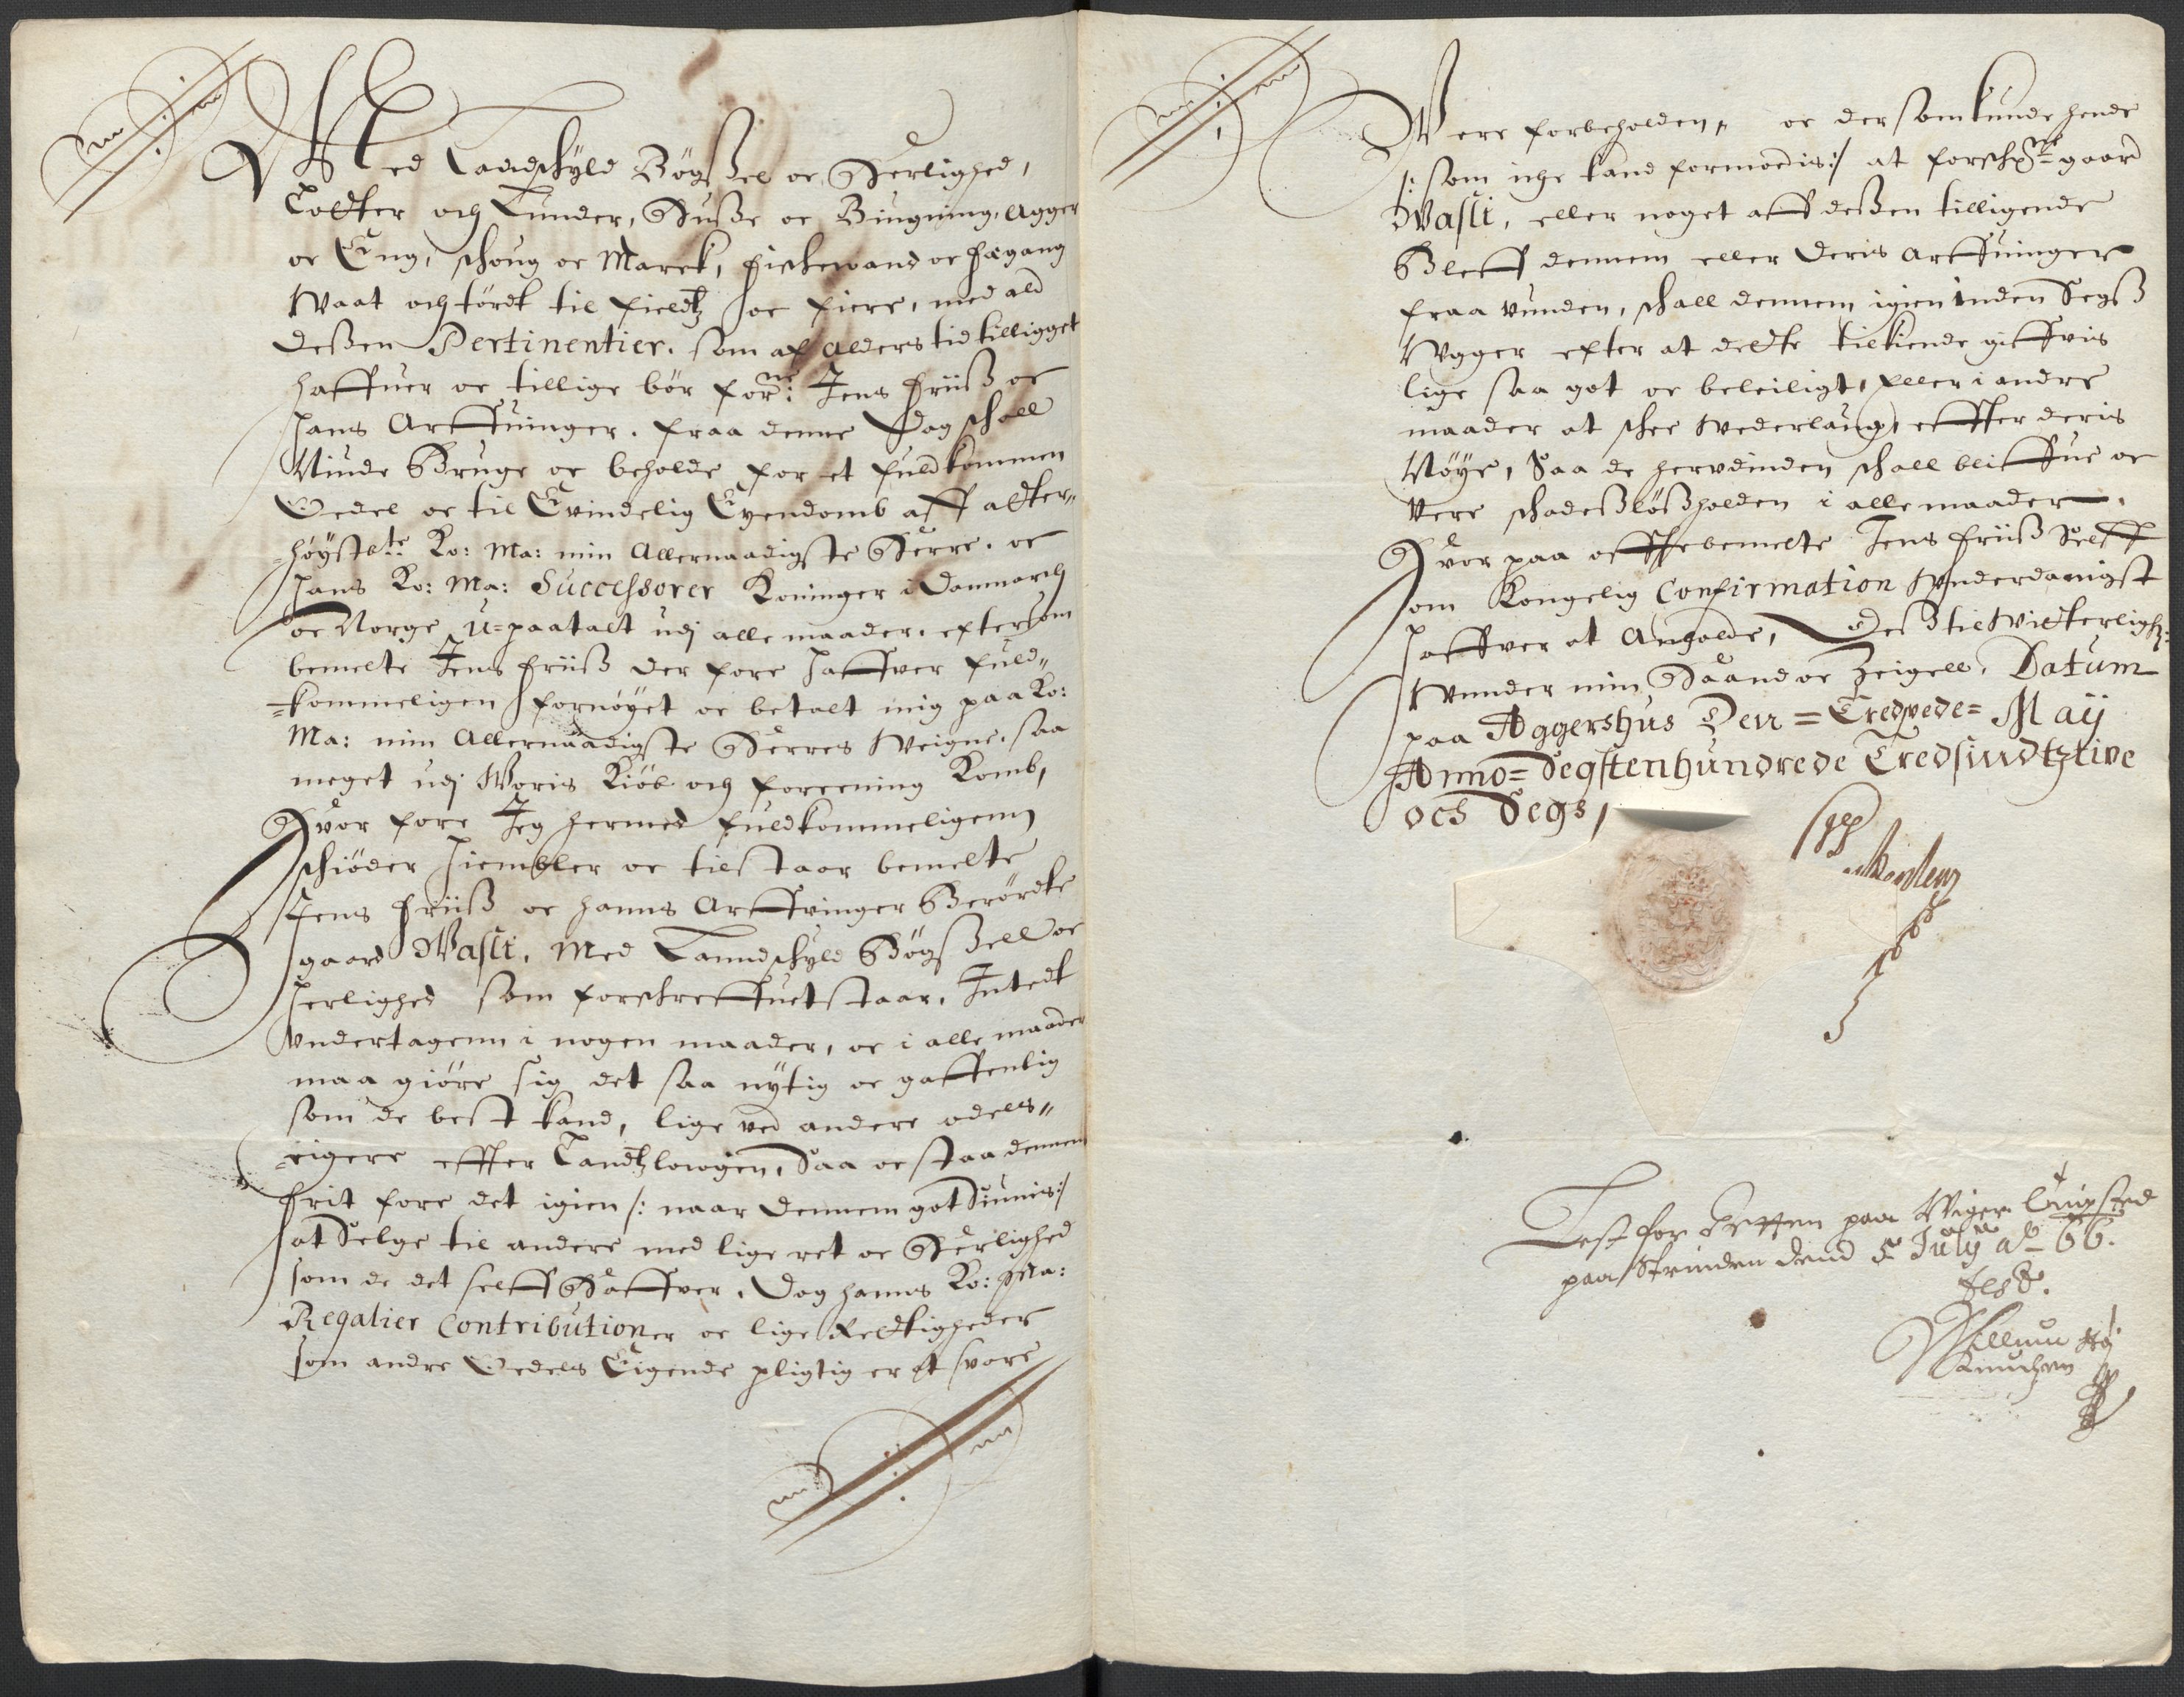 Med Landschyld Bögßel oc Herlighed,
Todter och Tunder, Huße oc Biugning, Agger
oc Eng, schoug oc Marck, fischewand oc fægang
Waat och tördt til fieldtz oc fiere, med ald
deßen Pertinentier. som af Alders tid tilligget
haffuer oc tillige bör forne: Jens friiß oc
hans Arffuinger. fraa denne Dag schall
Niude Bruge oc beholde for et fuldkommen
Oedel oc til Evindelig Eyendomb aff alder,,
=höystbte Ko: Ma: min Allernaadigste Herre. oc
hans Ko: Ma: Successorer Koninger i Danmarch
oc Norge u=paatalt udj alle maader. eftersom
bemelte Jens friiß der fore haffver fuld,,
=kommeligen fornöyet oc betalt mig paa Ko:
Ma: min Allernaadigste Herres Weigne. saa
meget udj Woris Kiöb och foreening Komb,
Hvor fore Jeg hermed fuldkommeligenn
schiöder hiembler oc tilstaar bemelte
Jens friiß oc hanns Arffvinger Berördte
gaard Wasli. Med Lanndschyld Bögßell oc
herlighed som forschreffuet staar. Intedt
vndertagenn i nogen maader, oc i alle maader
maa giöre sig det saa nytig oc gaffenlig
som de best kand, lige ved andere odels,,
=eigere effter Landtzlowgen, Saa oc staa dennem
frit fore det igien /: naar dennem got Siunis :/
at Selge til andere med lige ret oc Herlighed
som de det selff Haffver. Dog hanns Ko: Ma:
Regalier Contributioner oc lige Redtigheder
som andre Oedels Eigende pligtig er at svare
Were forbeholden,, oc dersom kunde hende
/: som iche kand formodis :/ at forschne gaard
Wasli, eller noget aff deßen tilligende
Bleff dennem eller deris Arffuinger
fraa vunden, schall dennem igien inden Segß
Wgger efter at dedte tilkiende giffvis
lige saa got oc beleiligt, eller i andre
maader at schee wederlaug, effter deris
Nöye, Saa de herudinden schall bliffue oc
Vere schadeßlößholden i alle maader.
Hvor paa offtebemelte Jens friiß Selff
som Kongelig Confirmation Wnderdanigst
haffver at Anholde, Deß til Witterlighz:
Wnnder min Haand oc Zeigell. Datum
paa Aggershus Den = Tredvede = Maÿ
Anno = Segstenhundrede Tredsindtztive
och Segs,
Lest for Retten paa Wiger Tingsted
paa Strinden dend 5 Julÿ Ao 66.
Test.
Willum
Knudsen